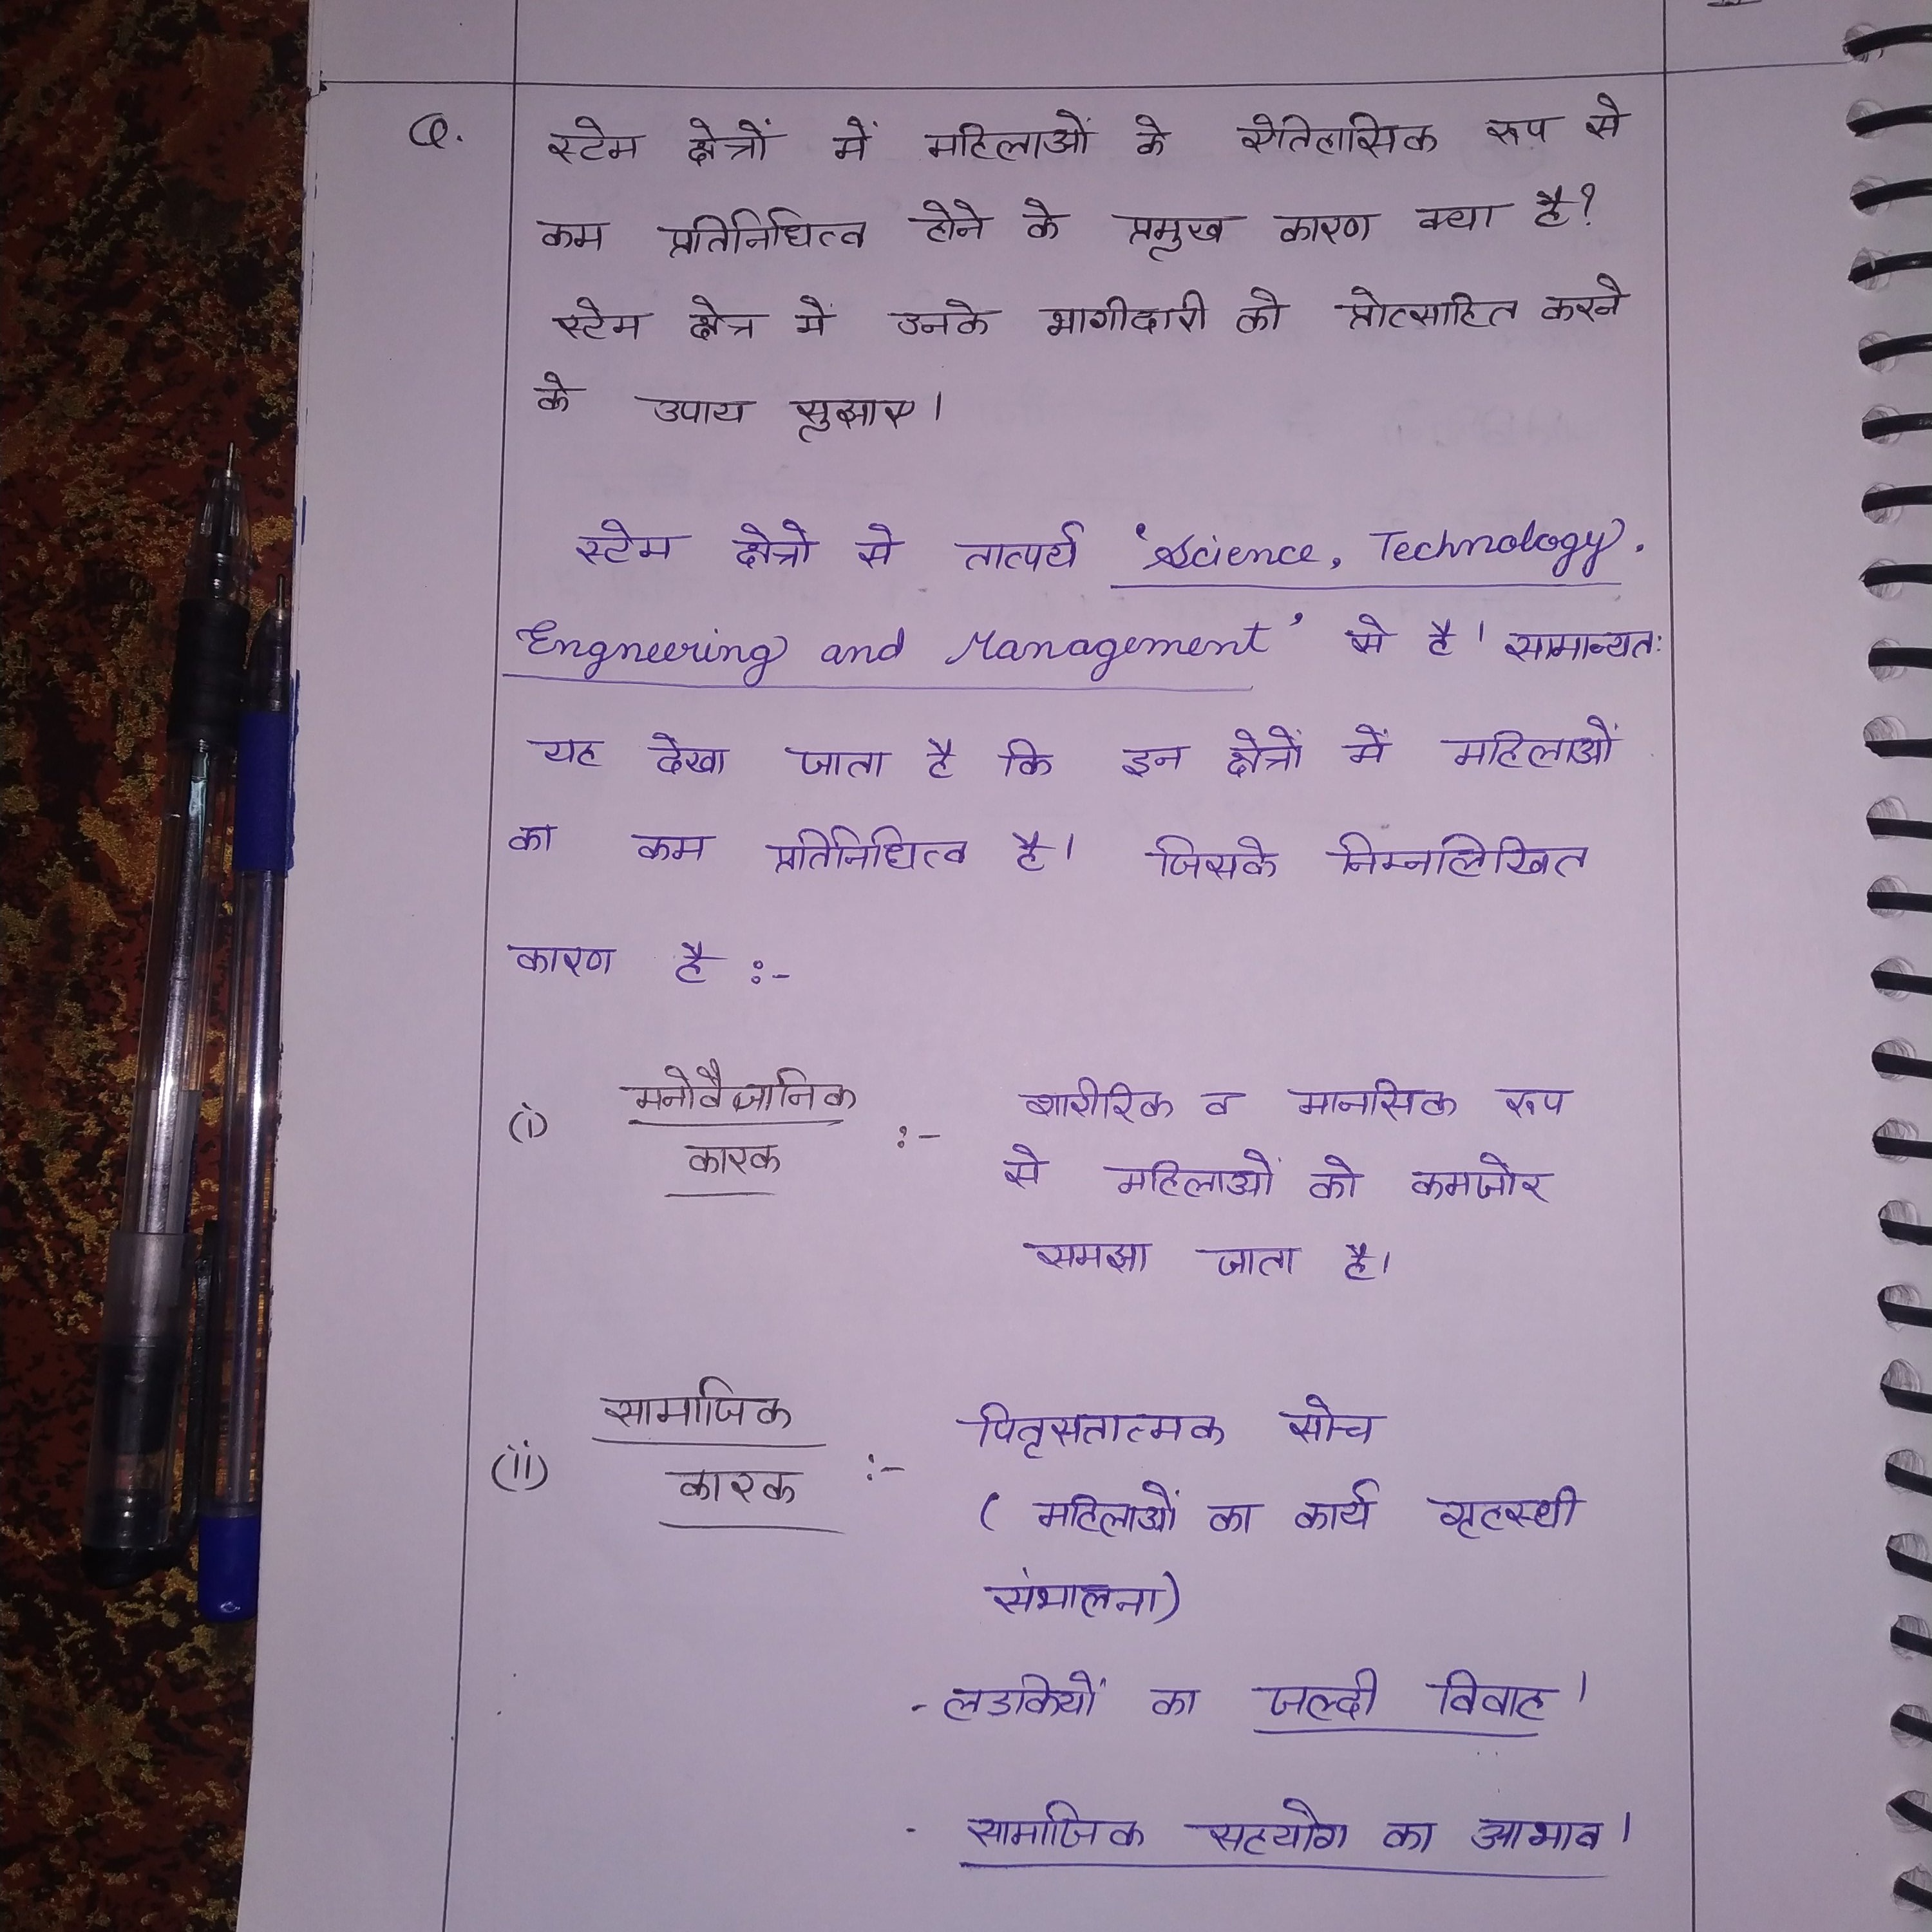 Q. स्टेम क्षेत्रों में महिलाओं के ऐतिहासिक रूप से
कम प्रतिनिधित्व होने के प्रमुख कारण क्या है?
स्टेम क्षेत्र में उनके भागीदारी को प्रोत्साहित करने
के उपाय सुझाए।
स्टेम क्षेत्रो से तात्पर्य 'Science, Technology,
Engneering and Management' से है। सामान्यतः
यह देखा जाता है कि इन क्षेत्रों में महिलाओं
का कम प्रतिनिधित्व है। जिसके निम्नलिखित
कारण है :-
(i) मनोवैज्ञानिक कारक :- शारीरिक व मानसिक रूप
से महिलाओं को कमजोर
समझा जाता है।
(ii) सामाजिक कारक :- पितृसतात्मक सोच
( महिलाओं का कार्य गृहस्थी
संभालना)
- लडकियों का जल्दी विवाह।
- सामाजिक सहयोग का आभाव।